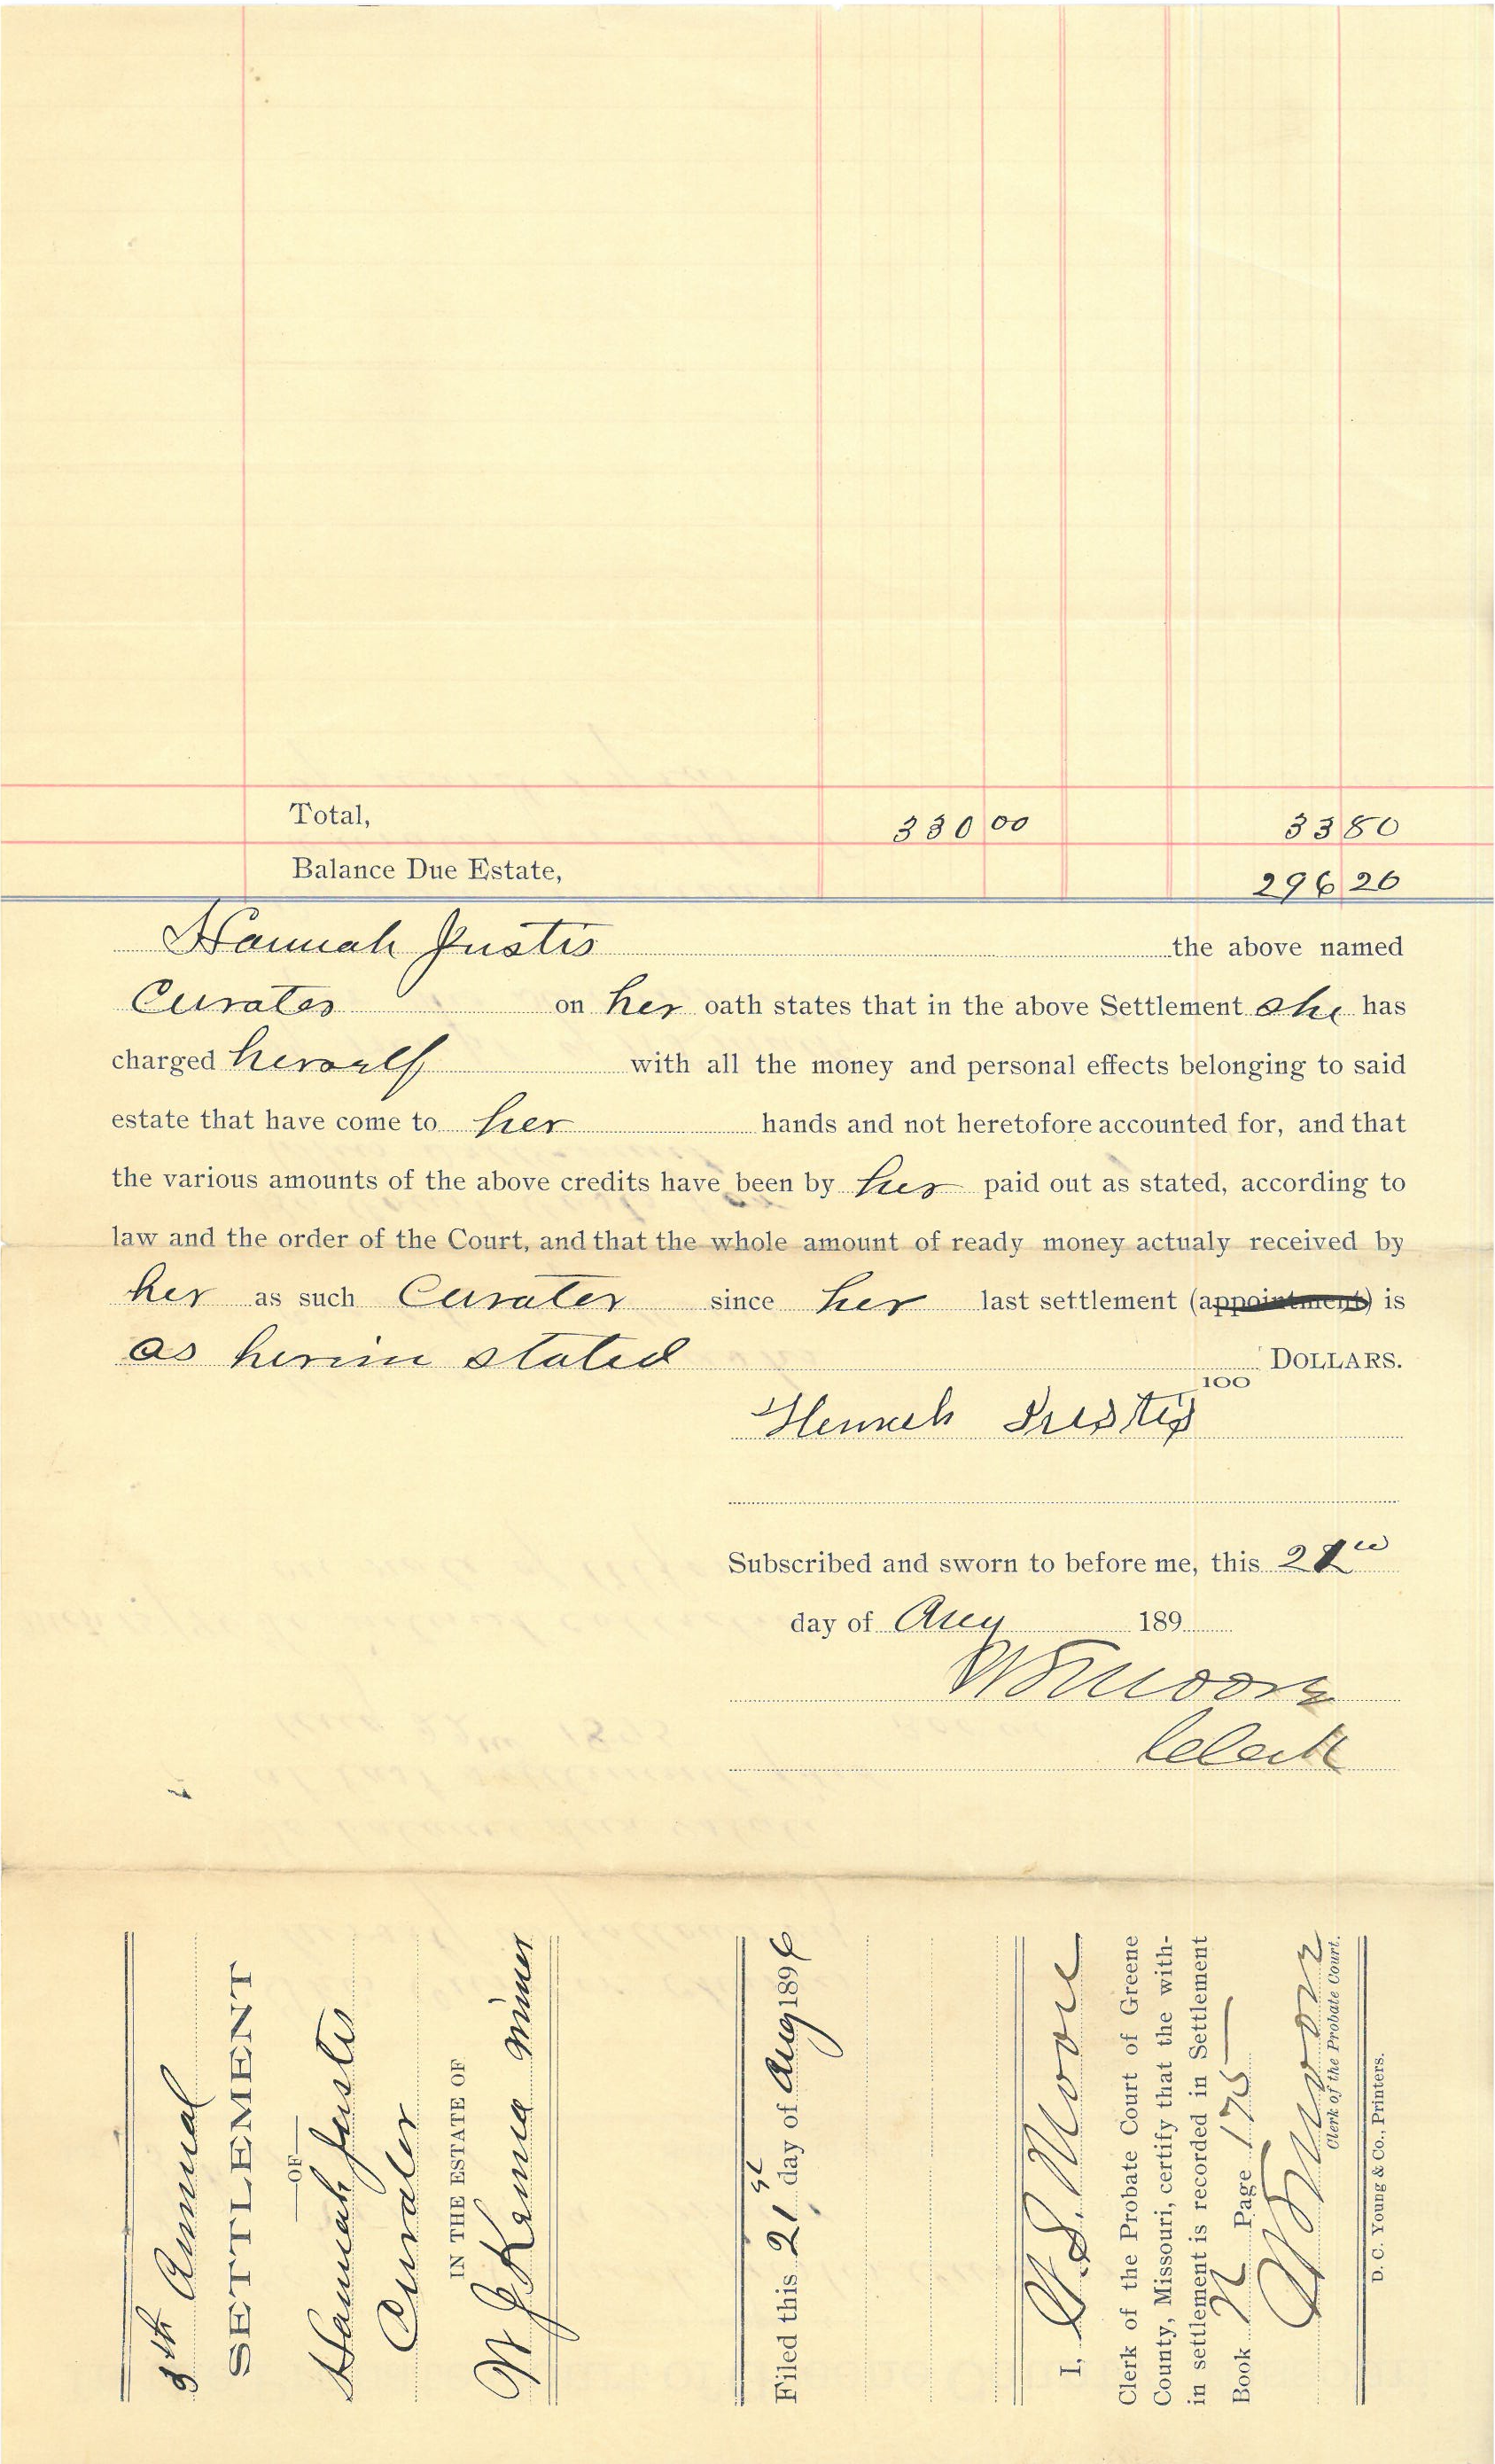 Total, 330 00 33 80
Balance Due Estate, 296 20
Hannah Justis the above named
Curator on her oath states that in the above Settlement she has
charged herself with all the money and personal effects belonging to said
estate that have come to her hands and not heretofore accounted for, and that
the various amounts of the above credits have been by her paid out as stated, according to
law and the order of the Court, and that the whole amount of ready money actualy received by
her as such Curator since her last settlement (appointment) is
as herein stated DOLLARS.
100
Hannah Justis
Subscribed and sworn to before me, this
day of Aug 189
W S Moore
Clerk
Annual
SETTLEMENT
—OF—
Hannah Justis
Curator
IN THE ESTATE OF
W J Kenna minor
Filed this 21st day of Aug 1896
I, W. S. Moore
Clerk of the Probate Court of Greene
County, Missouri, certify that the with-
in settlement is recorded in Settlement
Book N Page 175
W S Moore
Clerk of the Probate Court.
D. C. Young & Co., Printers.